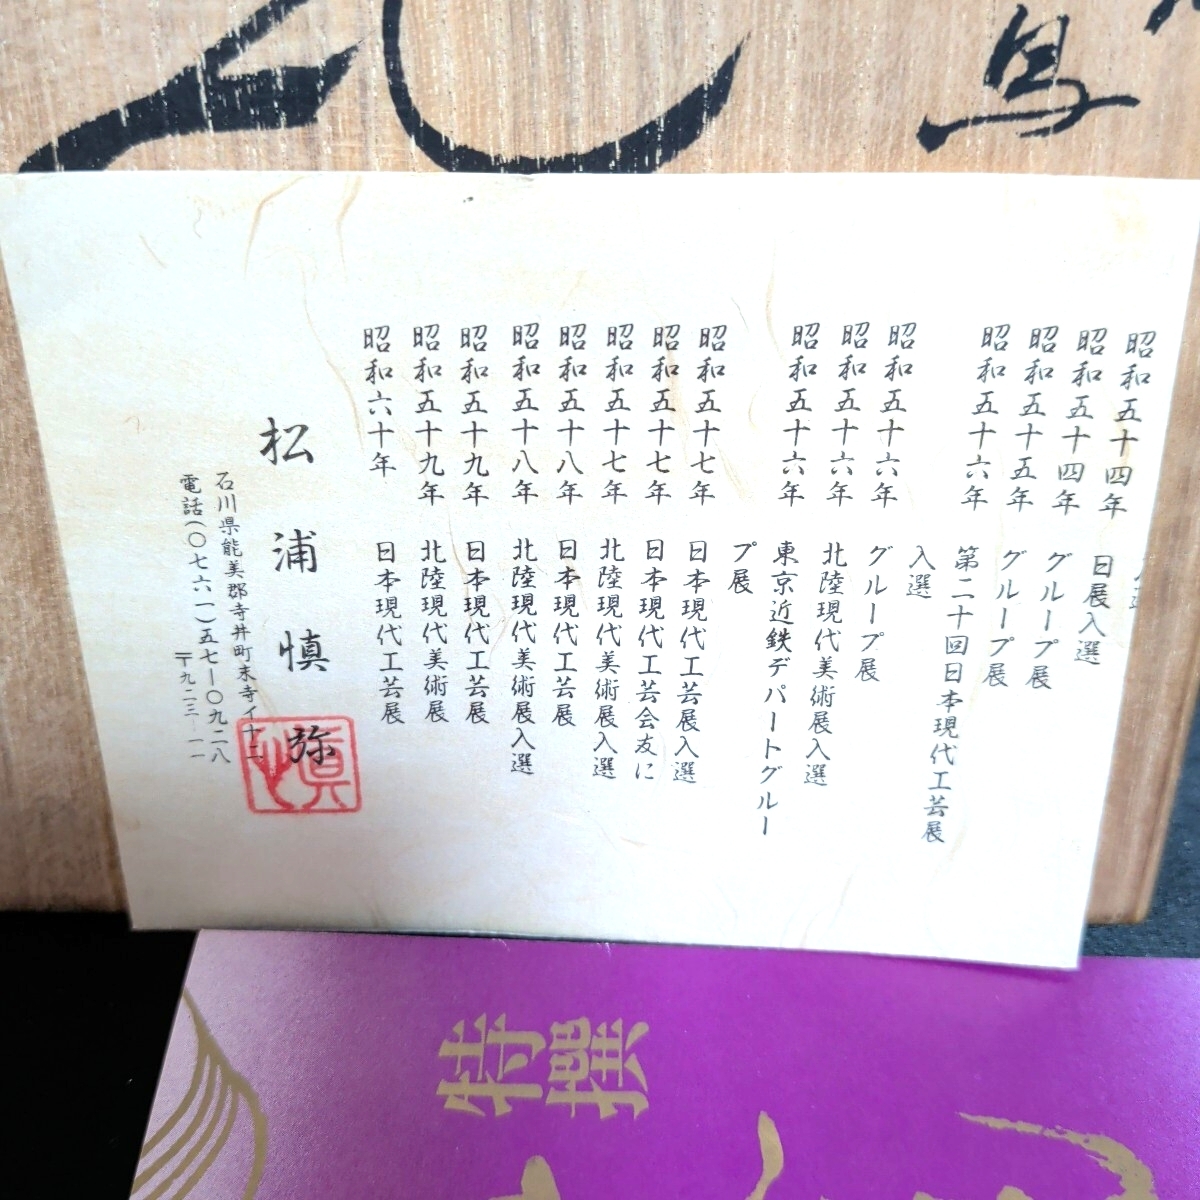 鳥
入選
昭和五十四年 日展入選
昭和五十四年 グループ展
昭和五十五年 グループ展
昭和五十六年 第二十回日本現代工芸展
入選
昭和五十六年 グループ展
昭和五十六年 北陸現代美術展入選
昭和五十六年 東京近鉄デパートグルー
プ展
昭和五十七年 日本現代工芸展入選
昭和五十七年 日本現代工芸会友に
昭和五十七年 北陸現代美術展入選
昭和五十八年 日本現代工芸展
昭和五十八年 北陸現代美術展入選
昭和五十九年 日本現代工芸展
昭和五十九年 北陸現代美術展
昭和六十年 日本現代工芸展
松浦慎弥
石川県能美郡寺井町末寺イ十二
電話(〇七六一)五七―〇九二八
〒九二三―一一
慎
特撰